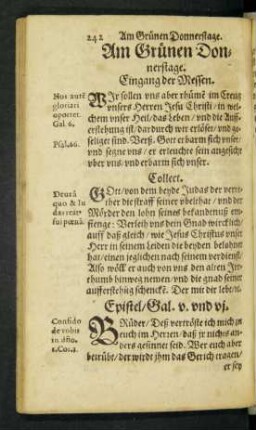 242 Am Grünen Donnerstage.
Am Grünen Don-
nerstage.
Eingang der Messen.
Nos autē
gloriari
oportet.
Gal. 6.
Psal. 66.
WIr sollen vns aber rhümē im Creutz
vnsers Herren Jesu Christi / in wel-
chem vnser Heil / das Leben / vnd die Auff-
erstehung ist / dardurch wir erlöset / vnd ge-
seliget sind. Verß. Gott erbarm sich vnser /
vnd segne vns / er erleuchte sein angesicht
vber vns / vnd erbarm sich vnser.
Collect.
Deus à
quo & Iu
das reatus
sui pœnā
GOtt / von dem beyde Judas der verrä-
ther die straff seiner vbelthat / vnd der
Mörder den lohn seines bekandtnuß em-
fienge: Verleih vns dein Gnad wircklich /
auff daß gleich / wie Jesus Christus vnser
Herr in seinem Leiden die beyden belohnt
hat / einen jeglichen nach seinem verdienst /
Also wöll er auch von vns den alten Jrr-
thumb hinweg nemen / vnd die gnad seiner
aufferstehūg schenckē. Der mit dir lebt / ꝛc.
Epistel / Gal. v. vnd vj.
Confido
de vobis
in dño.
1. Cor. 4.
BRüder / Deß vertröste ich mich zu
euch im Herzen / daß jr nichts an-
ders gesinnet seid. Wer euch aber
betrübt / der wirdt jhm das Gericht tragen /
er sey